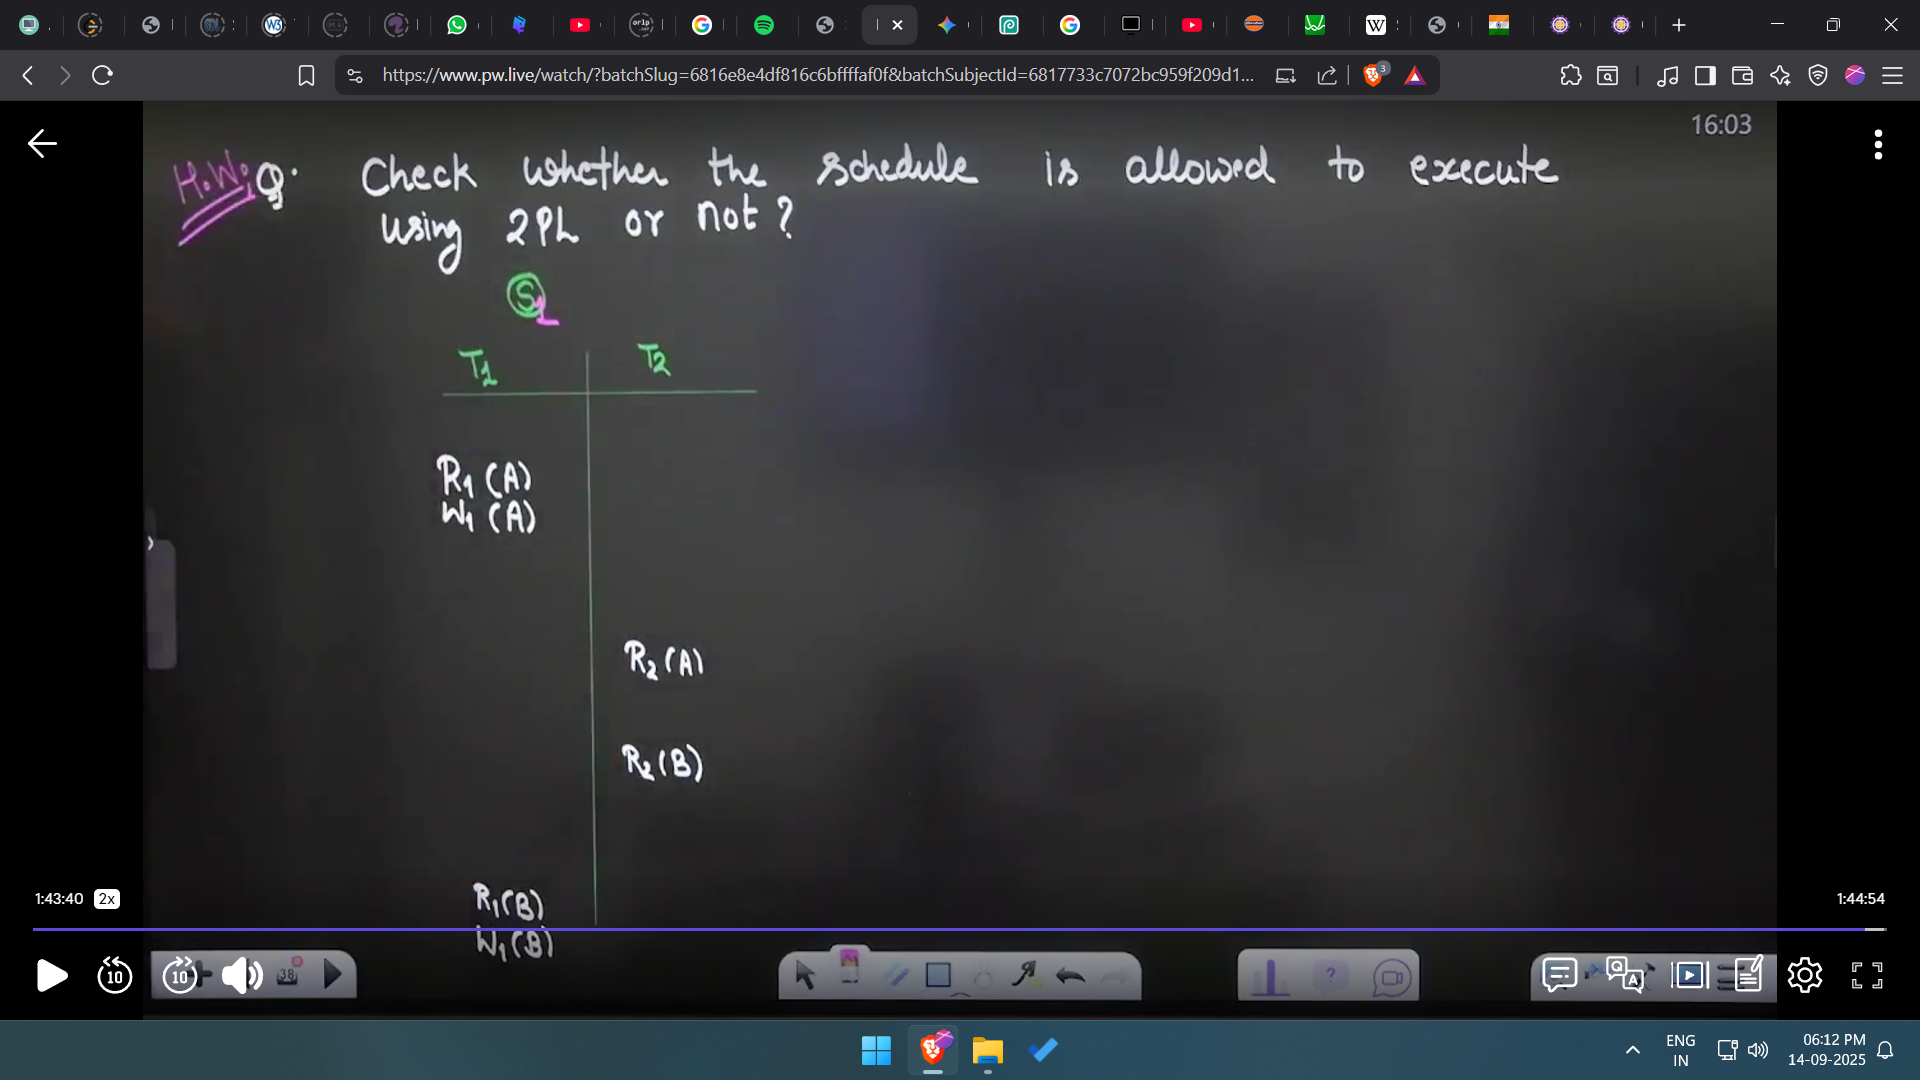 https://www.pw.live/watch/?batchSlug=6816e8e4df816c6bffffaf0f&batchSubjectId=6817733c7072bc959f209d1...
3
16:03
H.W: Q. Check whether the schedule is allowed to execute
using 2PL or not?
S1
T1 T2
R1 (A)
W1 (A)
R2 (A)
R2 (B)
R1 (B)
W1 (B)
1:43:40 2x 1:44:54
10 10 38
ENG
IN
06:12 PM
14-09-2025